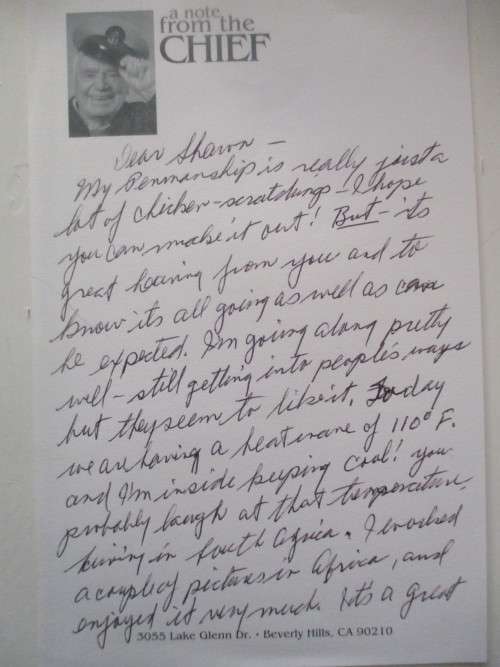 a note
from the
CHIEF
Dear Shawn —
My Penmanship is really just a
lot of chicken-scratchings — I hope
you can make it out! But — its
great hearing from you and to
know its all going as well as can
be expected. I'm going along pretty
well — still getting into people's ways
but they seem to like it. Today
we are having a heatwave of 110° F.
and I'm inside keeping cool! you
probably laugh at that temperature,
living in South Africa. I worked
a couple of pictures in Africa, and
enjoyed it very much. It's a great
3055 Lake Glenn Dr. • Beverly Hills, CA 90210